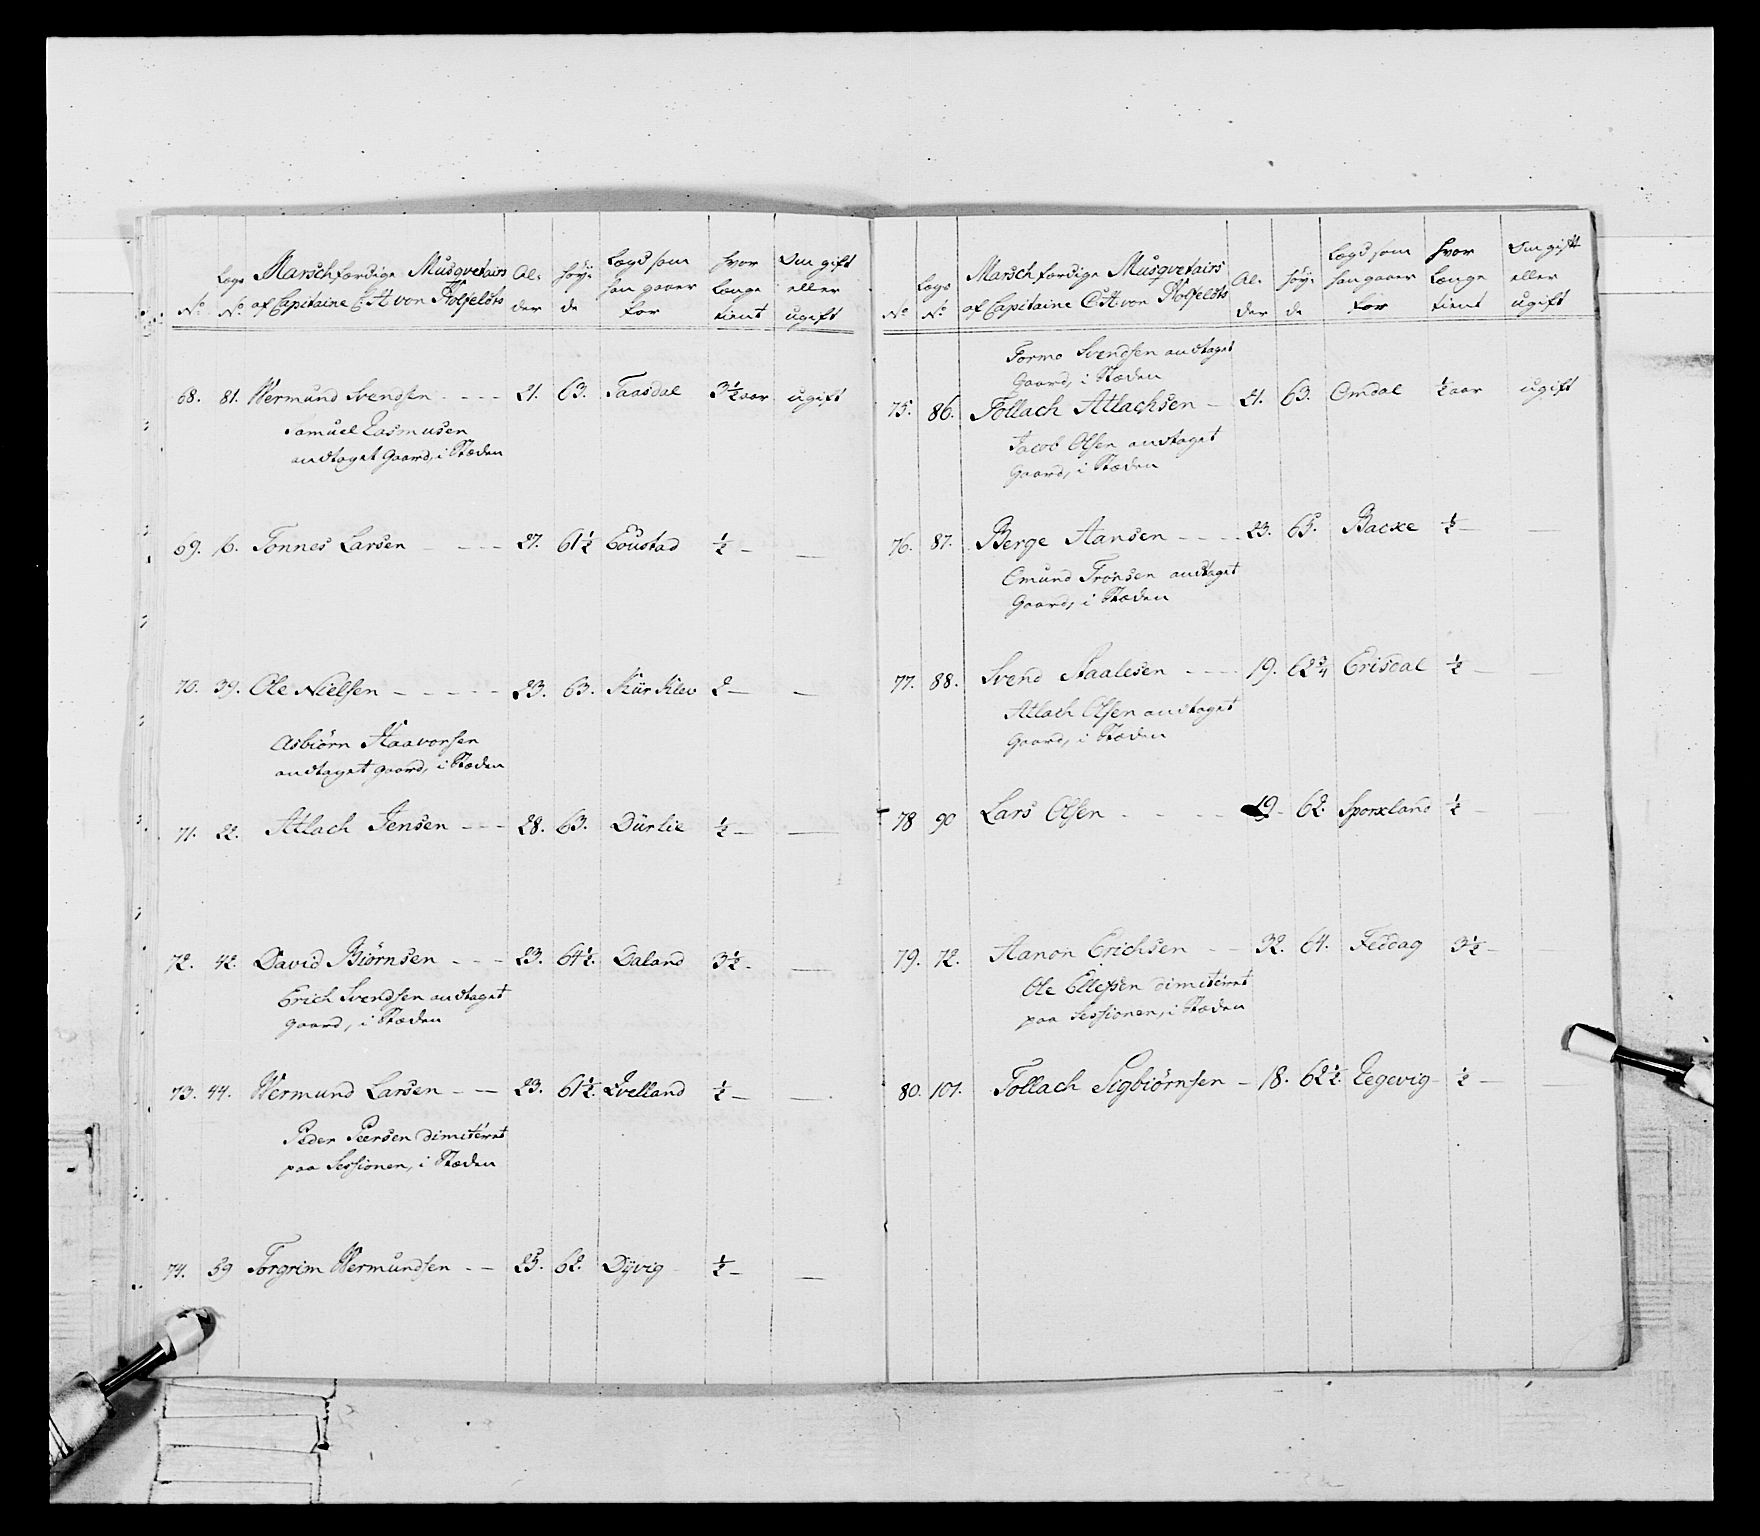 No
Legs No
Marschfærdige Musqvetairs
af Capitaine C: H: von Holfeldts
Al- der
Høy- de
Lægd som han gaaer for
Hvor længe tient
Om gift eller ugift
68. 81. Wermund Svendsen - - - - 21. 63. Taasdal 3½ aar ugift
Samuel Rasmusen
andtaget Gaard, i Stæden
69. 16. Tonnes Larsen - - - - 27. 61½ Eoustad ½ — —
70. 39. Ole Nielsen - - - - - 23. 63. Kürklev 2 — —
Asbiørn Haavorsen
andtaget gaard, i Stæden
71. 22. Atlach Jensen - - - 28. 63. Dürlie ½ — —
72. 42. David Biørnsen - - - 23. 64½. Daland 3½ - —
Erich Svendsen andtaget
gaard, i Stæden
73. 44. Wermund Larsen - — 23. 61½. Qvelland ½ — —
Peder Peersen dimiterret
paa Sessionen, i Stæden
74. 59 Torgrim Wermundsen - — 25. 62. Dÿvig ½ — —
No
Legs No
Marschfærdige Musqvetairs
af Capitaine C: H: von Holfeldts
Al- der
Høy- de
Lægd, som han gaaer for
Hvor længe tient
Om gift eller ugift
Tormo Svendsen andtaget
Gaard, i Stæden
75. 86. Tollach Atlachsen - 21. 63. Omdal ½ aar ugift
Jacob Olsen andtaget
Gaard, i Stæden
76. 87. Berge Hansen - - - - 23. 65. Backe ½ — —
Omund Tronsen andtaget
Gaard, i Stæden
77. 88. Svend Staalesen - - - 19. 62¾ Erisdal ½ — —
Atlach Olsen andtaget
Gaard, i Stæden
78 90 Lars Olsen - - - - - 19 - 62. Sporkland ½ — —
79. 72. Hanon Erichsen - — 32. 64. Feddag 3½ — —
Ole Ellefsen dimiterret
paa Sessionen, i Stæden
80. 101. Tollach Sigbiørnsen - 18. 62½. Eegevig - ½ —